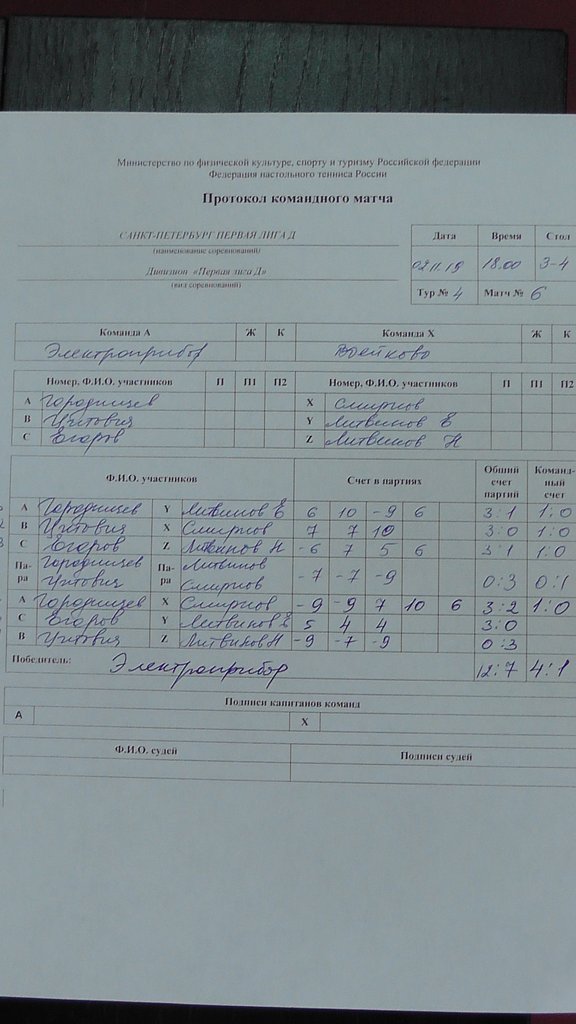 Министерство по физической культуре, спорту и туризму Российской федерации
Федерация настольного тенниса России
Протокол командного матча
САНКТ-ПЕТЕРБУРГ ПЕРВАЯ ЛИГА Д
(наименование соревнований)
Дивизион «Первая лига Д»
(вид соревнований)
Дата Время Стол
02.11.19 18.00 3-4
Тур № 4 Матч № 6
Команда А Ж К Команда Х Ж К
Электроприбор
Номер, Ф.И.О. участников П П1 П2 Номер, Ф.И.О. участников П П1 П2
А Городнищев Х Смирнов
В Учтович Y Литвинов Е
С Егоров Z Литвинов Н
Ф.И.О. участников Счет в партиях Общий счет партий Командный счет
А Городнищев Y Литвинов Е 6 10 -9 6 3:1 1:0
В Учтович Х Смирнов 7 7 10 3:0 1:0
С Егоров Z Литвинов Н -6 7 5 6 3:1 1:0
Пара Городнищев Учтович Пара Литвинов Смирнов -7 -7 -9 0:3 0:1
А Городнищев Х Смирнов -9 -9 7 10 6 3:2 1:0
С Егоров Y Литвинов Е 5 4 4 3:0
В Учтович Z Литвинов Н -9 -7 -9 0:3
Победитель: Электроприбор 12:7 4:1
Подписи капитанов команд
А Х
Ф.И.О. судей Подписи судей